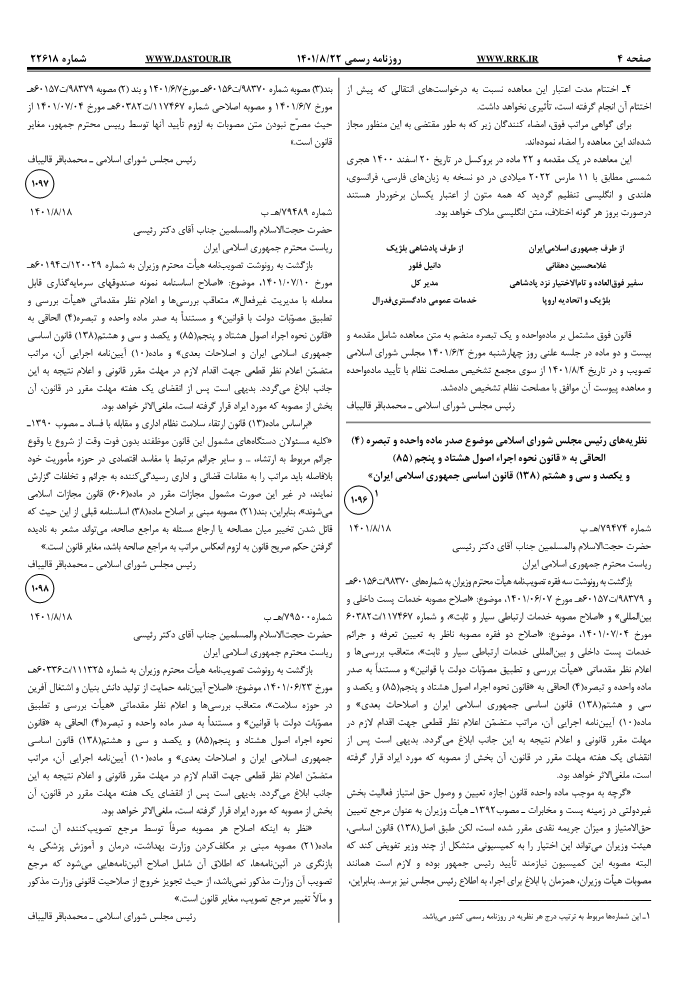 صفحه ۴
WWW.RRK.IR
روزنامه رسمی ۱۴۰۱/۸/۲۲
WWW.DASTOUR.IR
شماره ۲۲۶۱۸
۴ـ اختتام مدت اعتبار این معاهده نسبت به درخواست‌های انتقالی که پیش از
اختتام آن انجام گرفته است، تأثیری نخواهد داشت.
برای گواهی مراتب فوق، امضاء کنندگان زیر که به طور مقتضی به این منظور مجاز
شده‌اند این معاهده را امضاء نموده‌اند.
این معاهده در یک مقدمه و ۲۲ ماده در بروکسل در تاریخ ۲۰ اسفند ۱۴۰۰ هجری
شمسی مطابق با ۱۱ مارس ۲۰۲۲ میلادی در دو نسخه به زبان‌های فارسی، فرانسوی،
هلندی و انگلیسی تنظیم گردید که همه متون از اعتبار یکسان برخوردار هستند
درصورت بروز هر گونه اختلاف، متن انگلیسی ملاک خواهد بود.
از طرف جمهوری اسلامی‌ایران
از طرف پادشاهی بلژیک
غلامحسین دهقانی
دانیل فلور
سفیر فوق‌العاده و تام‌الاختیار نزد پادشاهی
مدیر کل
بلژیک و اتحادیه اروپا
خدمات عمومی دادگستری‌فدرال
قانون فوق مشتمل بر ماده‌واحده و یک تبصره منضم به متن معاهده شامل مقدمه و
بیست و دو ماده در جلسه علنی روز چهارشنبه مورخ ۱۴۰۱/۶/۲ مجلس شورای اسلامی
تصویب و در تاریخ ۱۴۰۱/۸/۴ از سوی مجمع تشخیص مصلحت نظام با تأیید ماده‌واحده
و معاهده پیوست آن موافق با مصلحت نظام تشخیص داده‌شد.
رئیس مجلس شورای اسلامی ـ محمدباقر قالیباف
نظریه‌های رئیس مجلس شورای اسلامی موضوع صدر ماده واحده و تبصره (۴)
الحاقی به « قانون نحوه اجراء اصول هشتاد و پنجم (۸۵)
و یکصد و سی و هشتم (۱۳۸) قانون اساسی جمهوری اسلامی ایران»
۱
۱۰۹۶
شماره ۷۹۴۷۴/هـ ب
۱۴۰۱/۸/۱۸
حضرت حجت‌الاسلام والمسلمین جناب آقای دکتر رئیسی
ریاست محترم جمهوری اسلامی ایران
بازگشت به رونوشت سه فقره تصویب‌نامه هیأت محترم وزیران به شماره‌های ۹۸۳۷۰/ت۶۰۱۵۶هـ
و ۹۸۳۷۹/ت۶۰۱۵۷هـ مورخ ۱۴۰۱/۰۶/۰۷، موضوع: «اصلاح مصوبه خدمات پست داخلی و
بین‌المللی» و «اصلاح مصوبه خدمات ارتباطی سیار و ثابت»، و شماره ۱۱۷۴۶۷/ت۶۰۳۸۲
مورخ ۱۴۰۱/۰۷/۰۴، موضوع: «اصلاح دو فقره مصوبه ناظر به تعیین تعرفه و جرائم
خدمات پست داخلی و بین‌المللی خدمات ارتباطی سیار و ثابت»، متعاقب بررسی‌ها و
اعلام نظر مقدماتی «هیأت بررسی و تطبیق مصوّبات دولت با قوانین» و مستنداً به صدر
ماده واحده و تبصره(۴) الحاقی به «قانون نحوه اجراء اصول هشتاد و پنجم(۸۵) و یکصد و
سی و هشتم(۱۳۸) قانون اساسی جمهوری اسلامی ایران و اصلاحات بعدی» و
ماده(۱۰) آیین‌نامه اجرایی آن، مراتب متضمّن اعلام نظر قطعی جهت اقدام لازم در
مهلت مقرر قانونی و اعلام نتیجه به این جانب ابلاغ می‌گردد. بدیهی است پس از
انقضای یک هفته مهلت مقرر در قانون، آن بخش از مصوبه که مورد ایراد قرار گرفته
است، ملغی‌الاثر خواهد بود.
«گرچه به موجب ماده واحده قانون اجازه تعیین و وصول حق امتیاز فعالیت بخش
غیردولتی در زمینه پست و مخابرات ـ مصوب۱۳۹۲ـ هیأت وزیران به عنوان مرجع تعیین
حق‌الامتیاز و میزان جریمه نقدی مقرر شده است، لکن طبق اصل(۱۳۸) قانون اساسی،
هیئت وزیران می‌تواند این اختیار را به کمیسیونی متشکل از چند وزیر تفویض کند که
البته مصوبه این کمیسیون نیازمند تأیید رئیس جمهور بوده و لازم است همانند
مصوبات هیأت وزیران، همزمان با ابلاغ برای اجرا، به اطلاع رئیس مجلس نیز برسد. بنابراین،
۱ـ این شماره‌ها مربوط به ترتیب درج هر نظریه در روزنامه رسمی کشور می‌باشد.
بند(۳) مصوبه شماره ۹۸۳۷۰/ت۶۰۱۵۶هـ مورخ۱۴۰۱/۶/۷ و بند (۲) مصوبه ۹۸۳۷۹/ت۶۰۱۵۷هـ
مورخ ۱۴۰۱/۶/۷ و مصوبه اصلاحی شماره ۱۱۷۴۶۷/ت۶۰۳۸۲هـ مورخ ۱۴۰۱/۰۷/۰۴ از
حیث مصرّح نبودن متن مصوبات به لزوم تأیید آنها توسط رییس محترم جمهور، مغایر
قانون است.»
رئیس مجلس شورای اسلامی ـ محمدباقر قالیباف
۱۰۹۷
شماره ۷۹۴۸۹/هـ ب
۱۴۰۱/۸/۱۸
حضرت حجت‌الاسلام والمسلمین جناب آقای دکتر رئیسی
ریاست محترم جمهوری اسلامی ایران
بازگشت به رونوشت تصویب‌نامه هیأت محترم وزیران به شماره ۱۲۰۰۲۹/ت۶۰۱۹۴هـ
مورخ ۱۴۰۱/۰۷/۱۰، موضوع: «اصلاح اساسنامه نمونه صندوقهای سرمایه‌گذاری قابل
معامله با مدیریت غیرفعال»، متعاقب بررسی‌ها و اعلام نظر مقدماتی «هیأت بررسی و
تطبیق مصوّبات دولت با قوانین» و مستنداً به صدر ماده واحده و تبصره(۴) الحاقی به
«قانون نحوه اجراء اصول هشتاد و پنجم(۸۵) و یکصد و سی و هشتم(۱۳۸) قانون اساسی
جمهوری اسلامی ایران و اصلاحات بعدی» و ماده(۱۰) آیین‌نامه اجرایی آن، مراتب
متضمّن اعلام نظر قطعی جهت اقدام لازم در مهلت مقرر قانونی و اعلام نتیجه به این
جانب ابلاغ می‌گردد. بدیهی است پس از انقضای یک هفته مهلت مقرر در قانون، آن
بخش از مصوبه که مورد ایراد قرار گرفته است، ملغی‌الاثر خواهد بود.
«براساس ماده(۱۳) قانون ارتقاء سلامت نظام اداری و مقابله با فساد ـ مصوب ۱۳۹۰ـ
«کلیه مسئولان دستگاه‌های مشمول این قانون موظفند بدون فوت وقت از شروع یا وقوع
جرائم مربوط به ارتشاء، ... و سایر جرائم مرتبط با مفاسد اقتصادی در حوزه مأموریت خود
بلافاصله باید مراتب را به مقامات قضائی و اداری رسیدگی‌کننده به جرائم و تخلفات گزارش
نمایند، در غیر این صورت مشمول مجازات مقرر در ماده(۶۰۶) قانون مجازات اسلامی
می‌شوند»، بنابراین، بند(۲۱) مصوبه مبنی بر اصلاح ماده(۳۸) اساسنامه قبلی از این حیث که
قائل شدن تخییر میان مصالحه یا ارجاع مسئله به مراجع صالحه، می‌تواند مشعر به نادیده
گرفتن حکم صریح قانون به لزوم انعکاس مراتب به مراجع صالحه باشد، مغایر قانون است.»
رئیس مجلس شورای اسلامی ـ محمدباقر قالیباف
۱۰۹۸
شماره۷۹۵۰۰/هـ ب
۱۴۰۱/۸/۱۸
حضرت حجت‌الاسلام والمسلمین جناب آقای دکتر رئیسی
ریاست محترم جمهوری اسلامی ایران
بازگشت به رونوشت تصویب‌نامه هیأت محترم وزیران به شماره ۱۱۱۳۲۵/ت۶۰۳۳۶هـ
مورخ ۱۴۰۱/۰۶/۲۳، موضوع: «اصلاح آیین‌نامه حمایت از تولید دانش بنیان و اشتغال آفرین
در حوزه سلامت»، متعاقب بررسی‌ها و اعلام نظر مقدماتی «هیأت بررسی و تطبیق
مصوّبات دولت با قوانین» و مستنداً به صدر ماده واحده و تبصره(۴) الحاقی به «قانون
نحوه اجراء اصول هشتاد و پنجم(۸۵) و یکصد و سی و هشتم(۱۳۸) قانون اساسی
جمهوری اسلامی ایران و اصلاحات بعدی» و ماده(۱۰) آیین‌نامه اجرایی آن، مراتب
متضمّن اعلام نظر قطعی جهت اقدام لازم در مهلت مقرر قانونی و اعلام نتیجه به این
جانب ابلاغ می‌گردد. بدیهی است پس از انقضای یک هفته مهلت مقرر در قانون، آن
بخش از مصوبه که مورد ایراد قرار گرفته است، ملغی‌الاثر خواهد بود.
«نظر به اینکه اصلاح هر مصوبه صرفاً توسط مرجع تصویب‌کننده آن است،
ماده(۲۱) مصوبه مبنی بر مکلف‌کردن وزارت بهداشت، درمان و آموزش پزشکی به
بازنگری در آئین‌نامه‌ها، که اطلاق آن شامل اصلاح آئین‌نامه‌هایی می‌شود که مرجع
تصویب آن وزارت مذکور نمی‌باشد، از حیث تجویز خروج از صلاحیت قانونی وزارت مذکور
و مآلاً تغییر مرجع تصویب، مغایر قانون است.»
رئیس مجلس شورای اسلامی ـ محمدباقر قالیباف